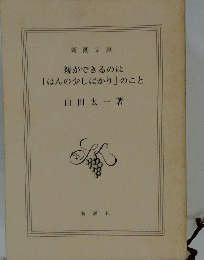 新潮文庫
親ができるのは
「ほんの少しばかり」のこと
山田太一著
新潮社